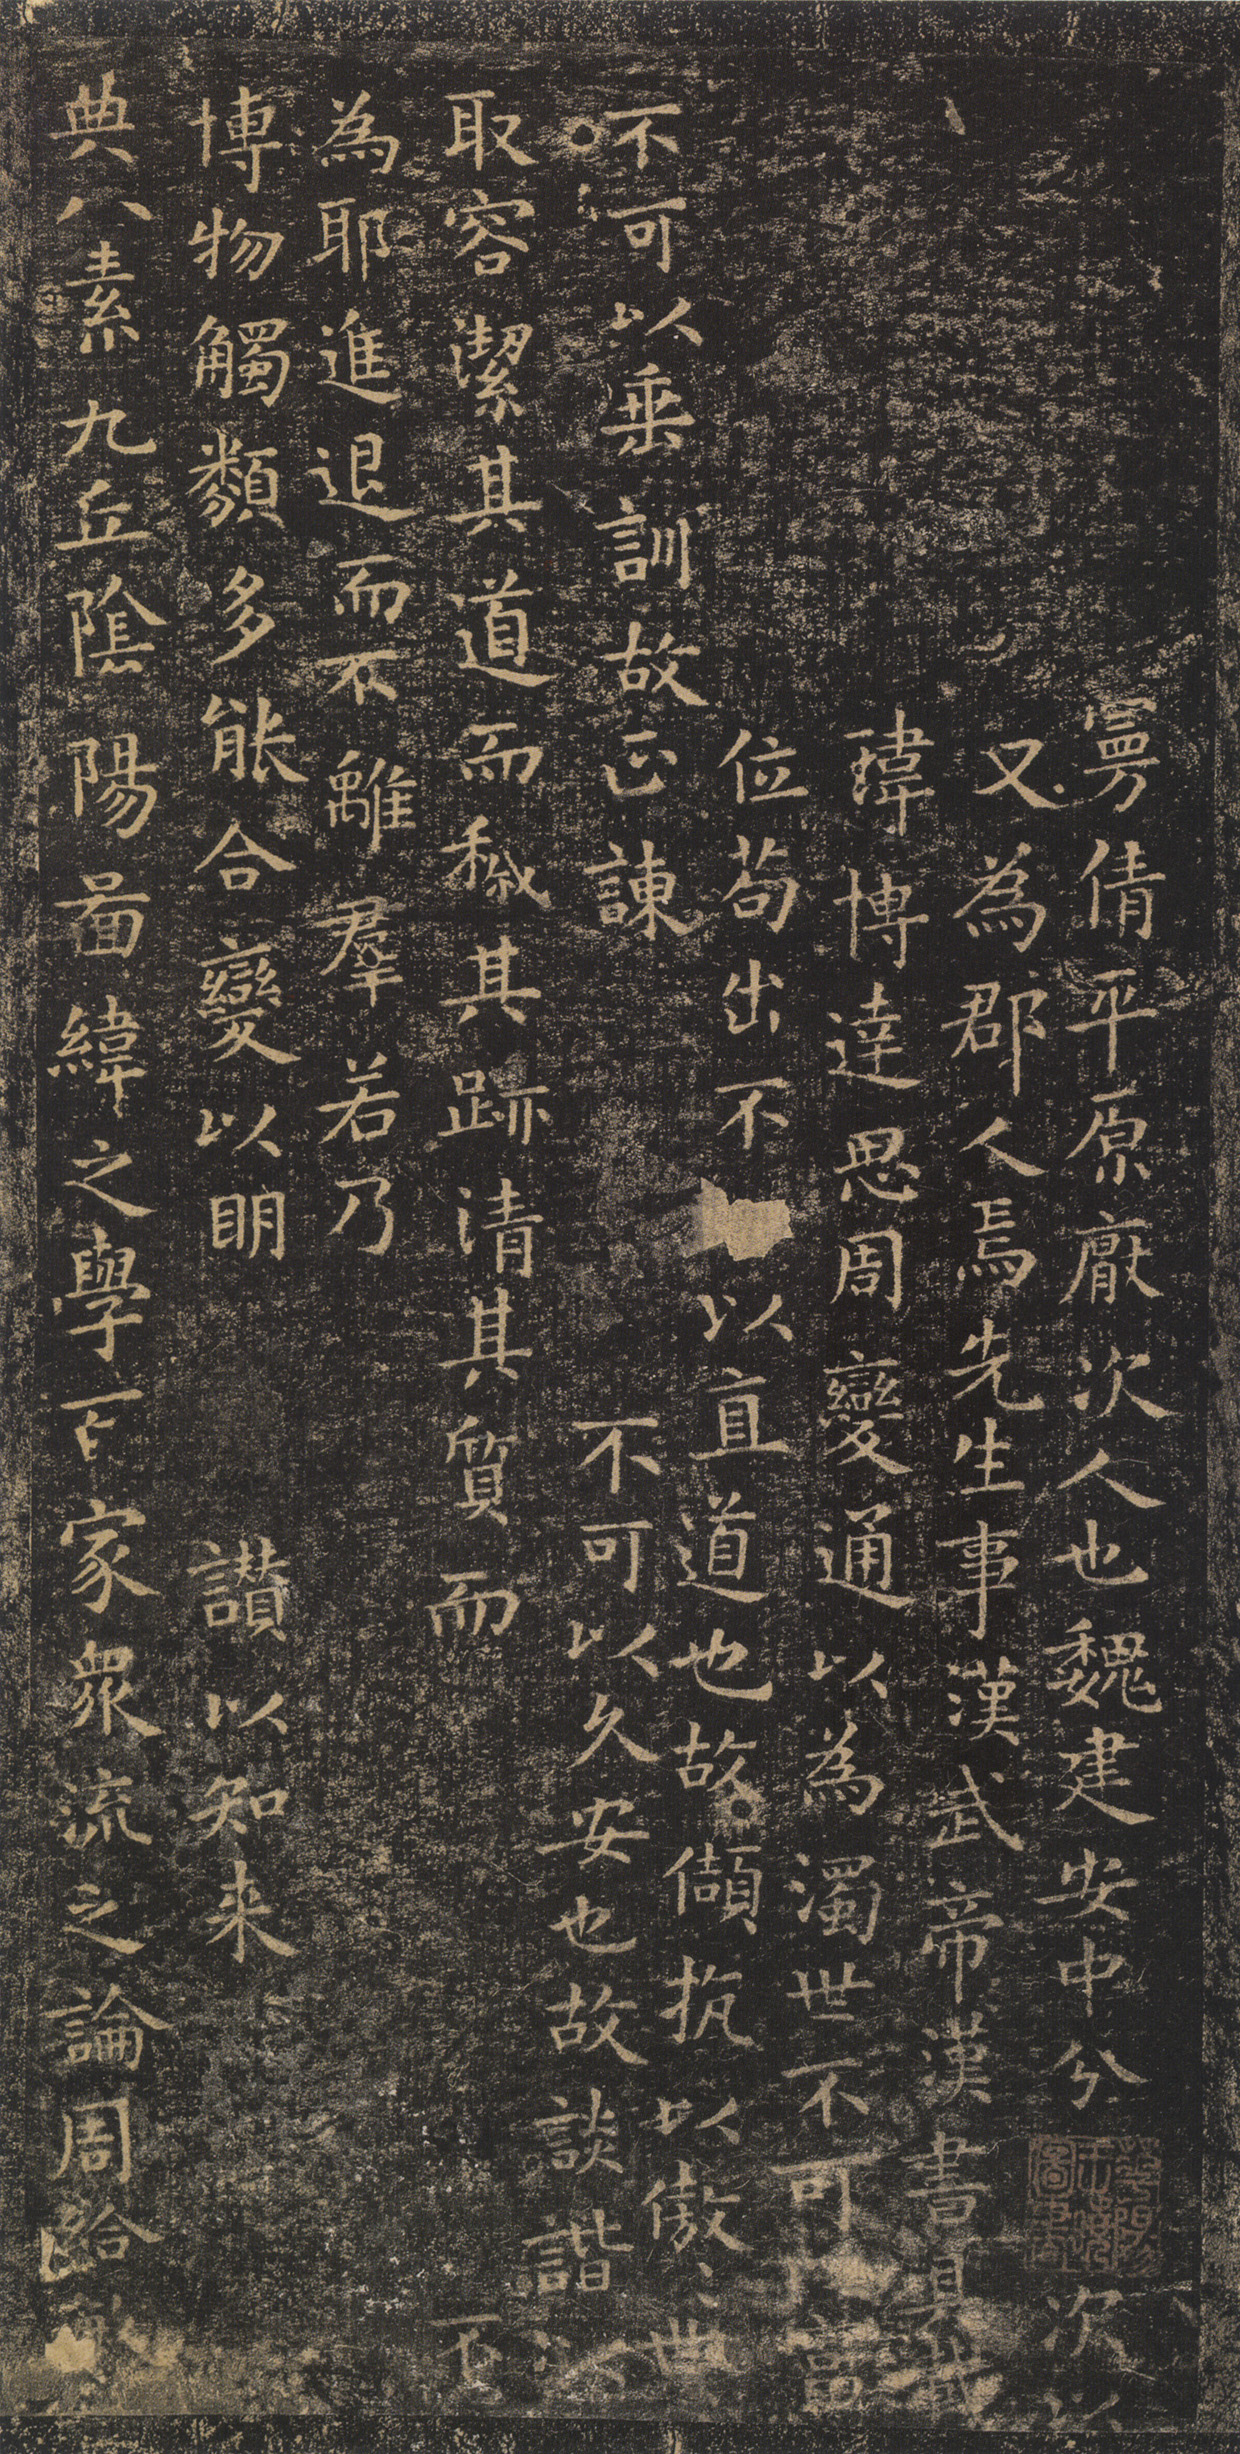 寧倩平原厭次人也魏建安中分次以
又為郡人焉先生事漢武帝漢書具載
瑋博達思周變通以為濁世不可富
位苟出不以直道也故傾抗以傲世
不可以垂訓故正諫不可以久安也故談諧以
取容潔其道而穢其跡清其質而
為耶進退而不離羣若乃
博物觸類多能合變以明讃以知来
典八素九丘陰陽啚緯之學百家衆流之論周給